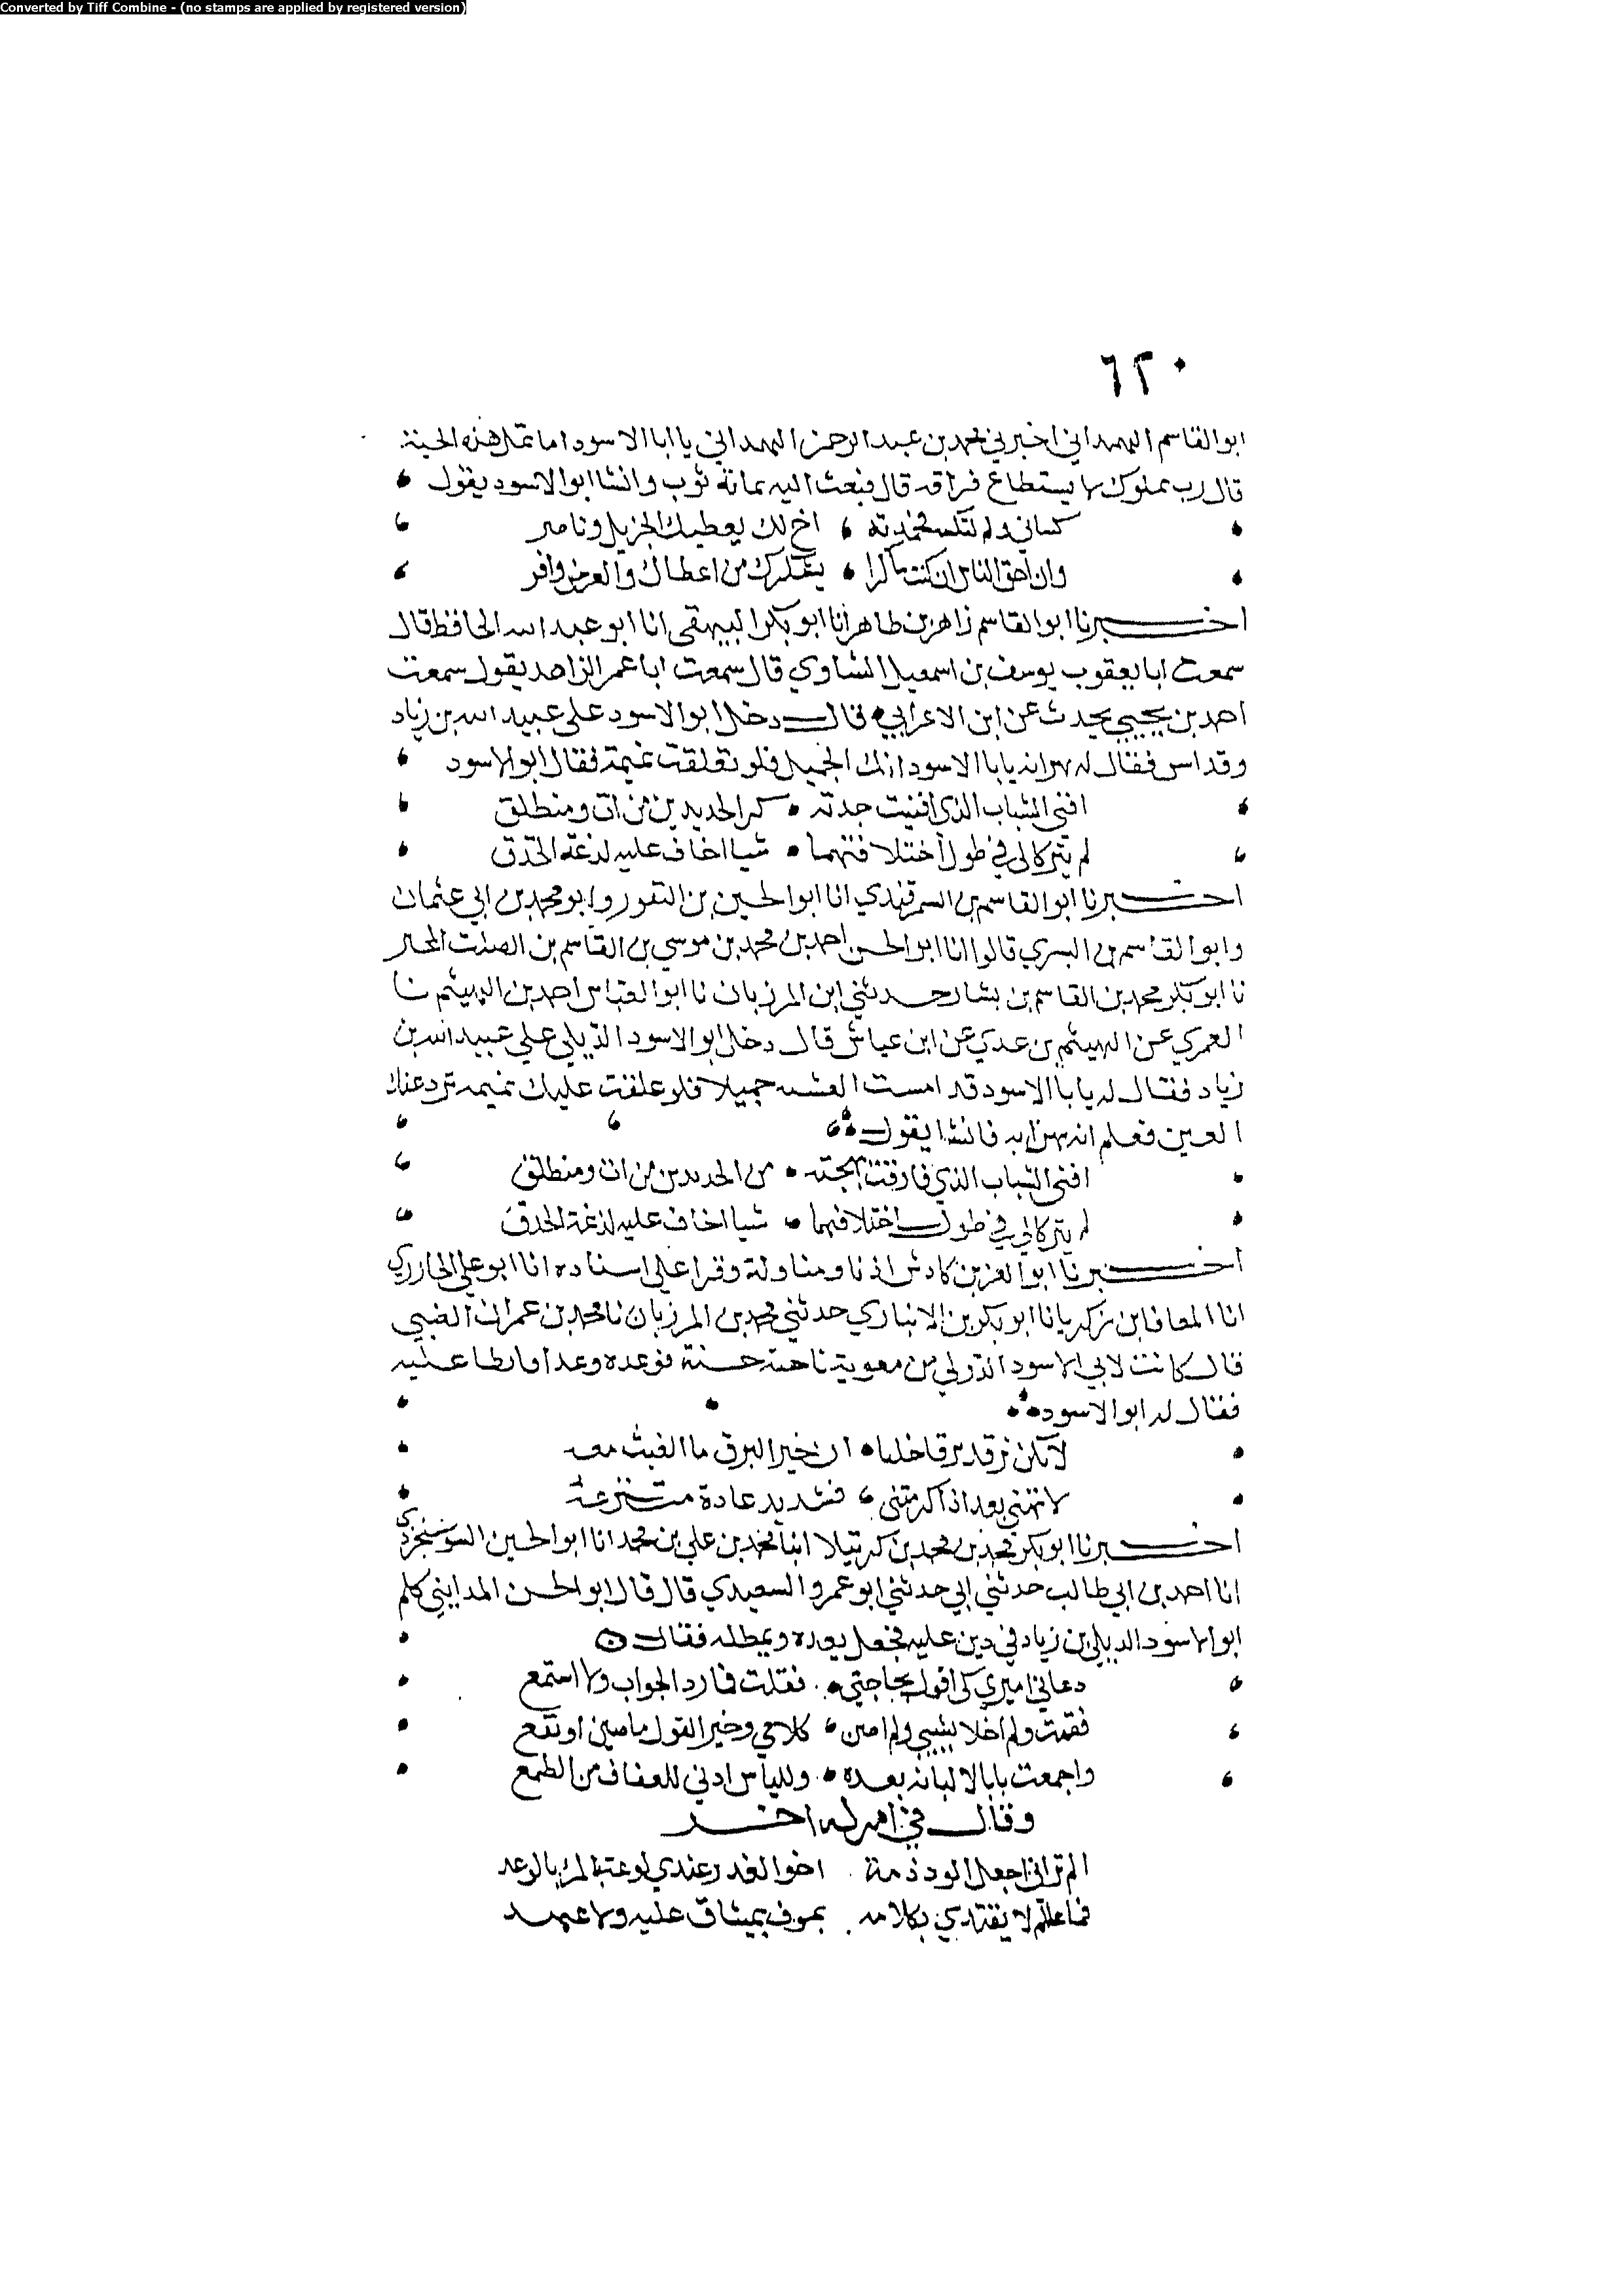 Converted by Tiff Combine - (no stamps are applied by registered version)
٦٢٠
ابو القاسم الهمداني اخبرني محمد بن عبد الرحمن الهمداني يا ابا الاسود اما تمل هذه الجبة
قال رب مملوك لا يستطاع فراقه قال فبعث اليه بمائة ثوب وانشا ابو الاسود يقول
كساني ولم تستكسه فحمدته اخ لك يعطيك الجزيل وناصر
وان احق الناس ان كنت شاكرا بشكرك من اعطاك والعرض وافر
اخبرنا ابو القاسم زاهر بن طاهر انا ابو بكر البيهقي انا ابو عبد الله الحافظ قال
سمعت ابا يعقوب يوسف بن اسمعيل الساوي قال سمعت ابا عمر الزاهد يقول سمعت
احمد بن يحيى يحدث عن ابن الاعرابي قال دخل ابو الاسود على عبيد الله بن زياد
وقد اسن فقال له يهزا به يابا الاسود انك الجميل فلو تعلقت تميمة فقال ابو الاسود
افنى الشباب الذي افنيت جدته كر الجديدين من ات ومنطلق
لم يتركا لي في طول اختلافهما شيا اخاف عليه لذعة الحدق
اخبرنا ابو القاسم بن السمرقندي انا ابو الحسين بن النقور وابو محمد بن ابي عثمان
وابو القاسم بن البسري قالوا انا ابو الحسن احمد بن محمد بن موسى بن القاسم بن الصلت المجبر
نا ابو بكر محمد بن القاسم بن بشار حدثني ابن المرزبان نا ابو العباس احمد بن الهيثم نا
العمري عن الهيثم بن عدي عن ابن عياش قال دخل ابو الاسود الديلي على عبيد الله بن
زياد فقال له يابا الاسود قد امسيت العشية جميلا فلو علقت عليك تميمه ترد عنك
العين فعلم انه يهزا به فانشا يقول
افنى الشباب الذي فارقت بهجته من الجديدين من ات ومنطلق
لم يتركا لي في طول اختلافهما شيا اخاف عليه لذغة الحدق
اخبرنا ابو العز بن كادش اذنا ومناولة وقرا علي اسناده انا ابو علي الجازري
انا المعافا بن زكريا نا ابو بكر بن الانباري حدثني محمد بن المرزبان نا محمد بن عمران الضبي
قال كانت لابي الاسود الدولي من معوية ناحية حسنة فوعده وعدا فابطا عليه
فقال له ابو الاسود
لا يكن برقك برقا خلبا ان خير البرق ما الغيث معه
لا تهني بعد اذ اكرمتني فشديد عادة منتزعة
اخبرنا ابو بكر محمد بن محمد بن كرتيلا انبا محمد بن علي بن محمد انا ابو الحسين السوسنجردي
انا احمد بن ابي طالب حدثني ابي حدثني ابو عمرو السعيدي قال قال ابو الحسن المدايني كلم
ابو الاسود الديلي بن زياد في دين عليه فجعل يعده ويمطله فقال
دعاني اميري كي اقول بحاجتي فقلت فما رد الجواب ولا استمع
فقمت ولم اخلا بشيء ولم اصن كلامي وخير القول ما صين او نفع
واجمعت يابا لا لبانة بعده ولليأس ادنى للعفاف من الطمع
وقال في امر له اخر
الم تر اني اجعل الود ذمة اخو الغدر عندي بالوعد
فما عالم لا يقتدي بكلامه بموف بميثاق عليه ولا عهد